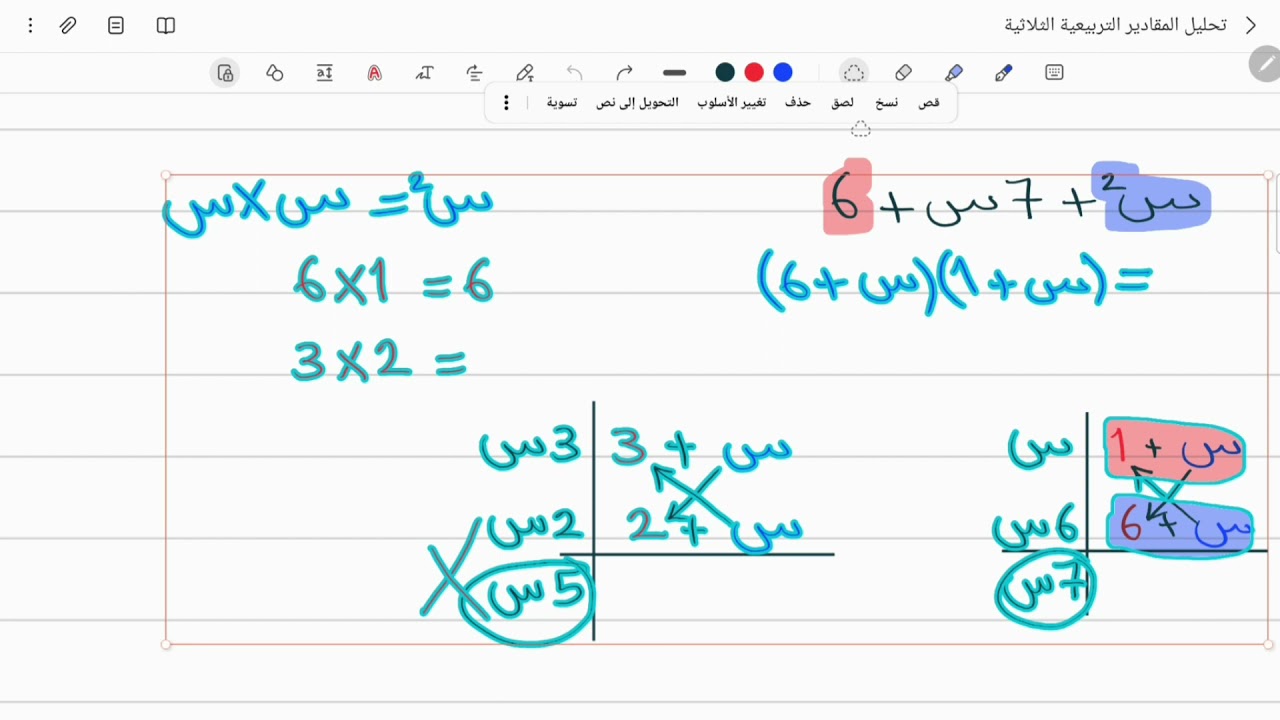 تحليل المقادير التربيعية الثلاثية
قص نسخ لصق حذف تغيير الأسلوب التحويل إلى نص تسوية
س² + 7س + 6
= (س + 1)(س + 6)
س² = س × س
6 = 1 × 6
= 2 × 3
س + 1 س
س + 6 6س
7س
س + 3 3س
س + 2 2س
5س ×